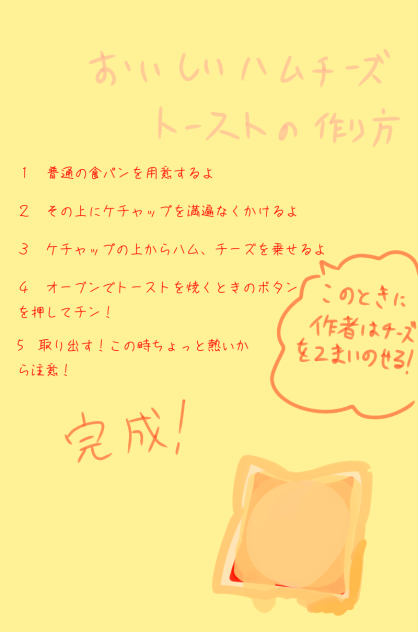 おいしいハムチーズ
トーストの作り方
1 普通の食パンを用意するよ
2 その上にケチャップを満遍なくかけるよ
3 ケチャップの上からハム、チーズを乗せるよ
4 オーブンでトーストを焼くときのボタン
を押してチン!
5 取り出す!この時ちょっと熱いか
ら注意!
このときに
作者はチーズ
を2まいのせる!
完成!